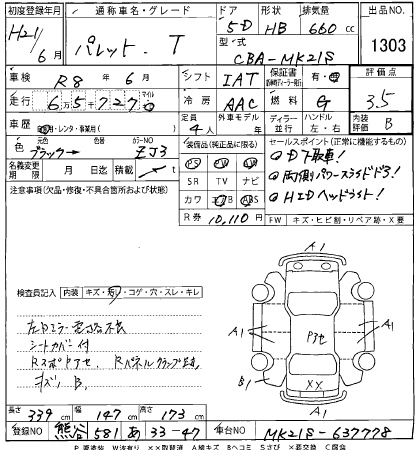 初度登録年月 通称車名・グレード ドア 形状 排気量 出品NO.
H21/6月 パレット T 5D HB 660cc 1303
型式 CBA-MK21S
車検 R8年6月 シフト IAT 保証書 有・無 評価点
走行 65727 マイル 冷房 AAC 燃料 G 3.5
車歴 自家用・レンタ・事業用( ) 定員 4人 外車モデル年 ディーラー 並行 ハンドル 左・右 内装評価 B
色 元色 ブラック→ カラーNO ZJ3 装備品(純正品に限る) セールスポイント(正常に機能するもの)
名義変更期限 月 日迄 積載 t PS PW AW ◎DT取車!
SR TV ナビ ◎両側パワースライドドア!
注意事項(欠品・修復・不具合箇所および状態) カワ エアB ABS ◎HIDヘッドライト!
R券 10,110円 FW キズ・ヒビ割・リペア跡・X要
検査員記入 内装 キズ・汚れ・コゲ・穴・スレ・キレ
A1
左Dミラー電格不良
シートカバー付 A1 Pアセ A1
RスポPアセ RパネルクランプE跡
キズ、B、 B1 XX
A1
長さ 339cm 幅 147cm 高さ 173cm
登録NO 熊谷 581 あ 33-47 車台NO MK21S-637778
P要塗装 W波有り XX取替済 A線キズ Bヘコミ Sさび X要交換 C腐食